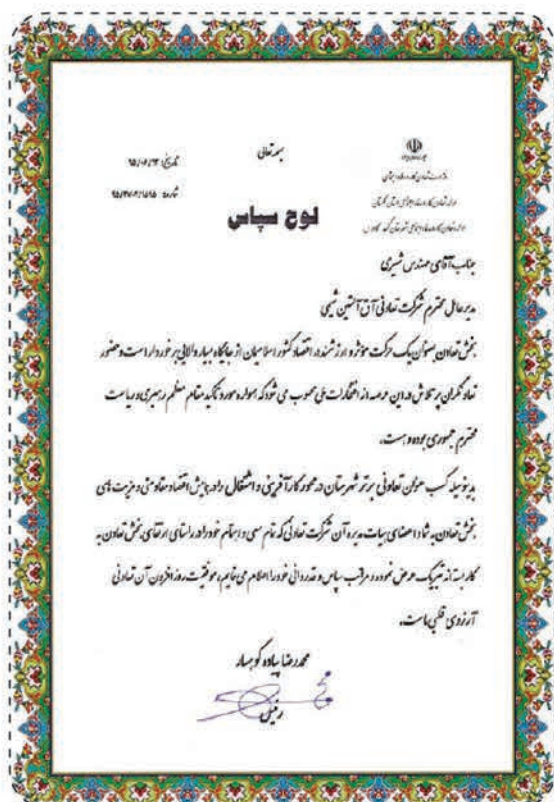 بسمه تعالی
جمهوری اسلامی ایران
وزارت تعاون، کار و رفاه اجتماعی
اداره کل تعاون، کار و رفاه اجتماعی استان گلستان
اداره تعاون، کار و رفاه اجتماعی شهرستان گنبد کاووس
تاریخ: ۹۵/۰۶/۱۳
شماره:
لوح سپاس
جناب آقای مهندس شیری
مدیر عامل محترم شرکت تعاونی آق آلتین شیمی
بخش تعاون بعنوان یک حرکت مؤثر و ارزشمند در اقتصاد کشور اسلامیمان از جایگاه بسیار والایی برخوردار است و حضور
تعاونگران پرتلاش در این عرصه از افتخارات ملی محسوب می شود که همواره مورد تأکید مقام معظم رهبری و ریاست
محترم جمهوری بوده و هست.
بدینوسیله کسب عنوان تعاونی برتر شهرستان در محور کارآفرینی و اشتغال را در همایش اقتصاد مقاومتی و مزیت های
بخش تعاون به شما و اعضای هیات مدیره آن شرکت تعاونی که تمام سعی و اهتمام خود را در راستای ارتقای بخش تعاون به
کار بسته اند تبریک عرض نموده و مراتب سپاس و قدردانی خود را اعلام می نمایم، موفقیت روزافزون آن تعاونی
آرزوی قلبی ماست.
محمدرضا پیاده کوهسار
رئیس